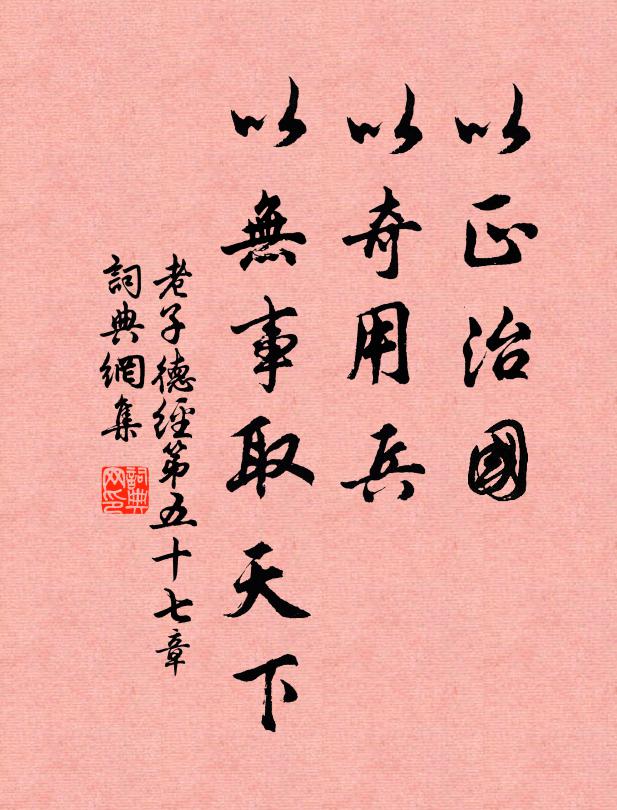 以正治國
以奇用兵
以無事取天下
老子德經第五十七章
詞典網集
詞典
网印